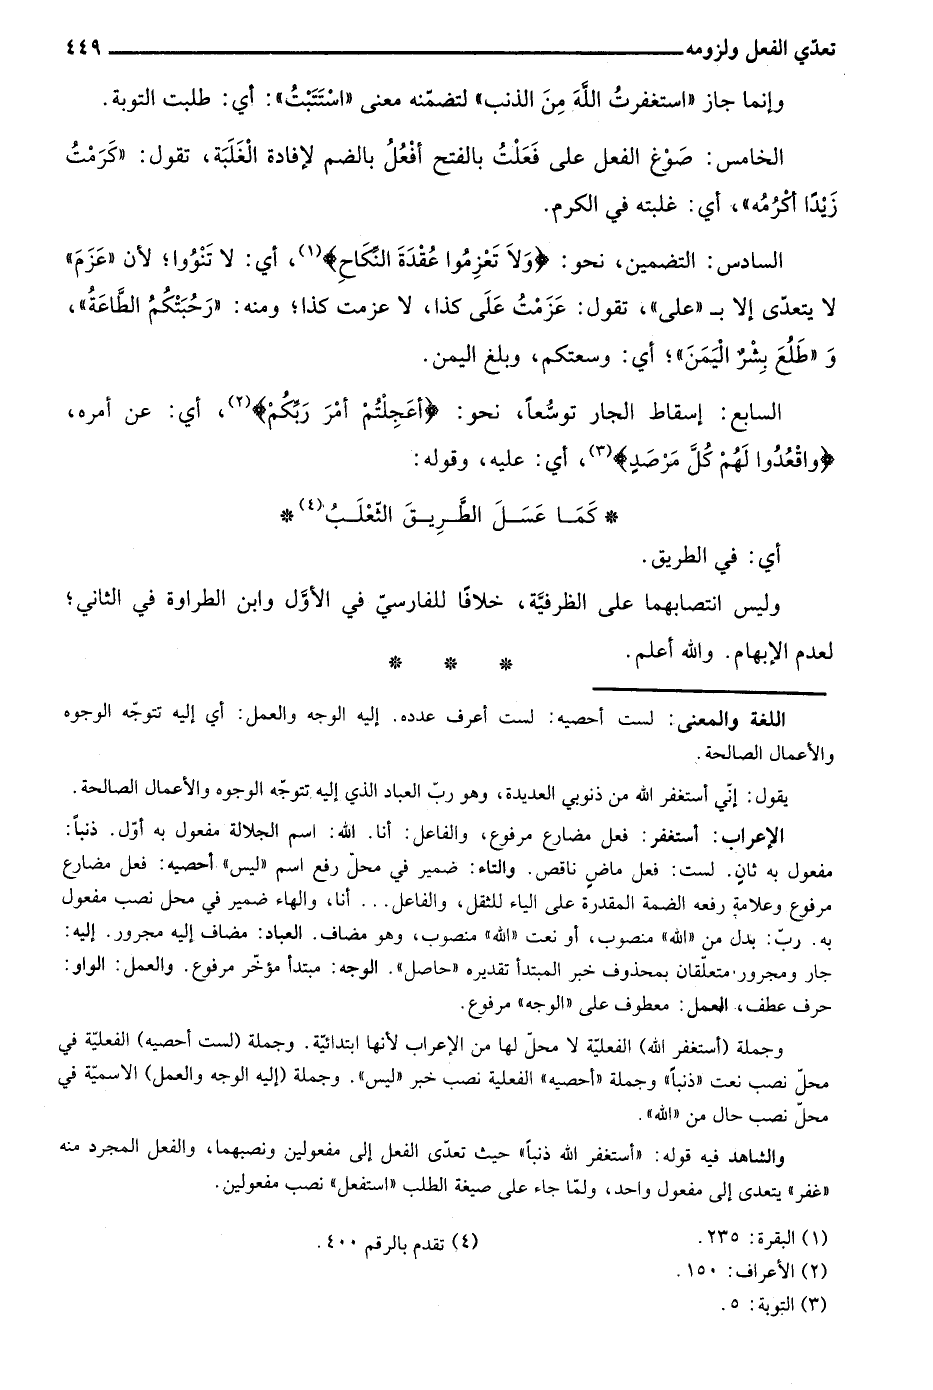 تعدّي الفعل ولزومه ـــــــــــــــــــــ ٤٤٩
وإنما جاز «استغفرتُ اللَّهَ مِنَ الذنب» لتضمّنه معنى «اسْتَتَبْتُ»: أي: طلبت التوبة.
الخامس: صَوْغ الفعل على فَعَلْتُ بالفتح أَفْعُلُ بالضم لإفادة الْغَلَبَة، تقول: «كَرَمْتُ
زَيْدًا أَكْرُمُه»، أي: غلبته في الكرم.
السادس: التضمين، نحو: ﴿وَلاَ تَعْزِمُوا عُقْدَةَ النِّكَاحِ﴾(١)، أي: لا تَنْوُوا؛ لأن «عَزَمَ»
لا يتعدّى إلا بـ «على»، تقول: عَزَمْتُ عَلَى كذا، لا عزمت كذا؛ ومنه: «رَحُبَتْكُمُ الطَّاعَةُ»،
وَ «طَلُعَ بِشْرٌ الْيَمَنَ»؛ أي: وسعتكم، وبلغ اليمن.
السابع: إسقاط الجار توسُّعاً، نحو: ﴿أَعَجِلْتُمْ أَمْرَ رَبِّكُمْ﴾(٢)، أي: عن أمره،
﴿واقْعُدُوا لَهُمْ كُلَّ مَرْصَدٍ﴾(٣)، أي: عليه، وقوله:
* كَمَـا عَسَـلَ الطَّـرِيـقَ الثّعْلَـبُ(٤) *
أي: في الطريق.
وليس انتصابهما على الظرفيَّة، خلافًا للفارسيّ في الأوَّل وابن الطراوة في الثاني؛
لعدم الإبهام. والله أعلم.
* * *
اللغة والمعنى: لست أحصيه: لست أعرف عدده. إليه الوجه والعمل: أي إليه تتوجّه الوجوه
والأعمال الصالحة.
يقول: إنّي أستغفر الله من ذنوبي العديدة، وهو ربّ العباد الذي إليه تتوجّه الوجوه والأعمال الصالحة.
الإعراب: أستغفر: فعل مضارع مرفوع، والفاعل: أنا. الله: اسم الجلالة مفعول به أوّل. ذنباً:
مفعول به ثانٍ. لست: فعل ماضٍ ناقص. والتاء: ضمير في محلّ رفع اسم «ليس» أحصيه: فعل مضارع
مرفوع وعلامة رفعه الضمة المقدرة على الياء للثقل، والفاعل... أنا، والهاء ضمير في محل نصب مفعول
به. ربّ: بدل من «الله» منصوب، أو نعت «الله» منصوب، وهو مضاف. العباد: مضاف إليه مجرور. إليه:
جار ومجرور متعلّقان بمحذوف خبر المبتدأ تقديره «حاصل». الوجه: مبتدأ مؤخّر مرفوع. والعمل: الواو:
حرف عطف، العمل: معطوف على «الوجه» مرفوع.
وجملة (أستغفر الله) الفعليّة لا محلّ لها من الإعراب لأنها ابتدائيّة. وجملة (لست أحصيه) الفعليّة في
محلّ نصب نعت «ذنباً» وجملة «أحصيه» الفعلية نصب خبر «ليس». وجملة (إليه الوجه والعمل) الاسميّة في
محلّ نصب حال من «الله».
والشاهد فيه قوله: «أستغفر الله ذنباً» حيث تعدّى الفعل إلى مفعولين ونصبهما، والفعل المجرد منه
«غفر» يتعدى إلى مفعول واحد، ولمّا جاء على صيغة الطلب «استفعل» نصب مفعولين.
(١) البقرة: ٢٣٥.
(٢) الأعراف: ١٥٠.
(٣) التوبة: ٥.
(٤) تقدم بالرقم ٤٠٠.